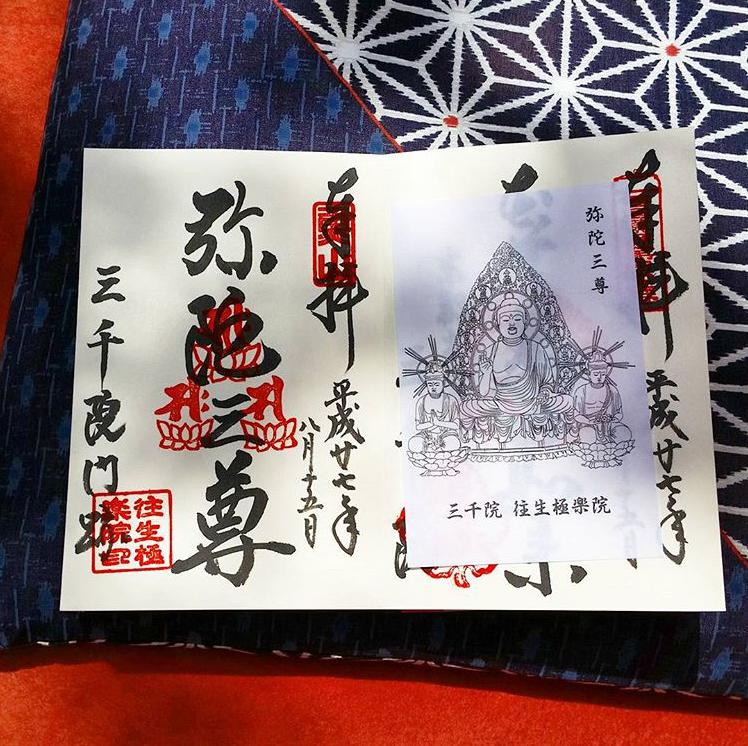 奉拝
平成廿七年
八月十五日
弥陀三尊
三千院門跡
往生極
楽院印
弥陀三尊
三千院 往生極樂院
奉拝
平成廿七年